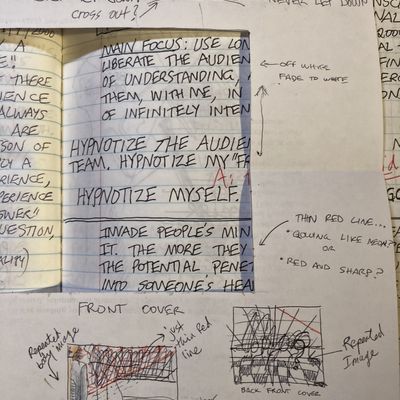 cross out?
NEVER LET DOWN
/2000
A
E"
THERE
IENCE
ALWAYS
ARE
SON OF
LY A
RIENCE,
PERIENCE
SWER"
UESTION,
ALITY)
MAIN FOCUS: USE LON
LIBERATE THE AUDIEN
OF UNDERSTANDING,
THEM, WITH ME, IN
OF INFINITELY INTEN
HYPNOTIZE THE AUDIEN
TEAM. HYPNOTIZE MY "F
HYPNOTIZE MYSELF.
INVADE PEOPLE'S MIN
IT. THE MORE THEY
THE POTENTIAL, PENE
INTO SOMEONE'S HEA
OFF WHITE
FADE TO WHITE
THIN RED LINE...
"GLOWING LIKE NEON?"
OR
"RED AND SHARP?
FRONT COVER
Repeated
body image
just
thin red
line
Repeated
Image
BACK FRONT COVER